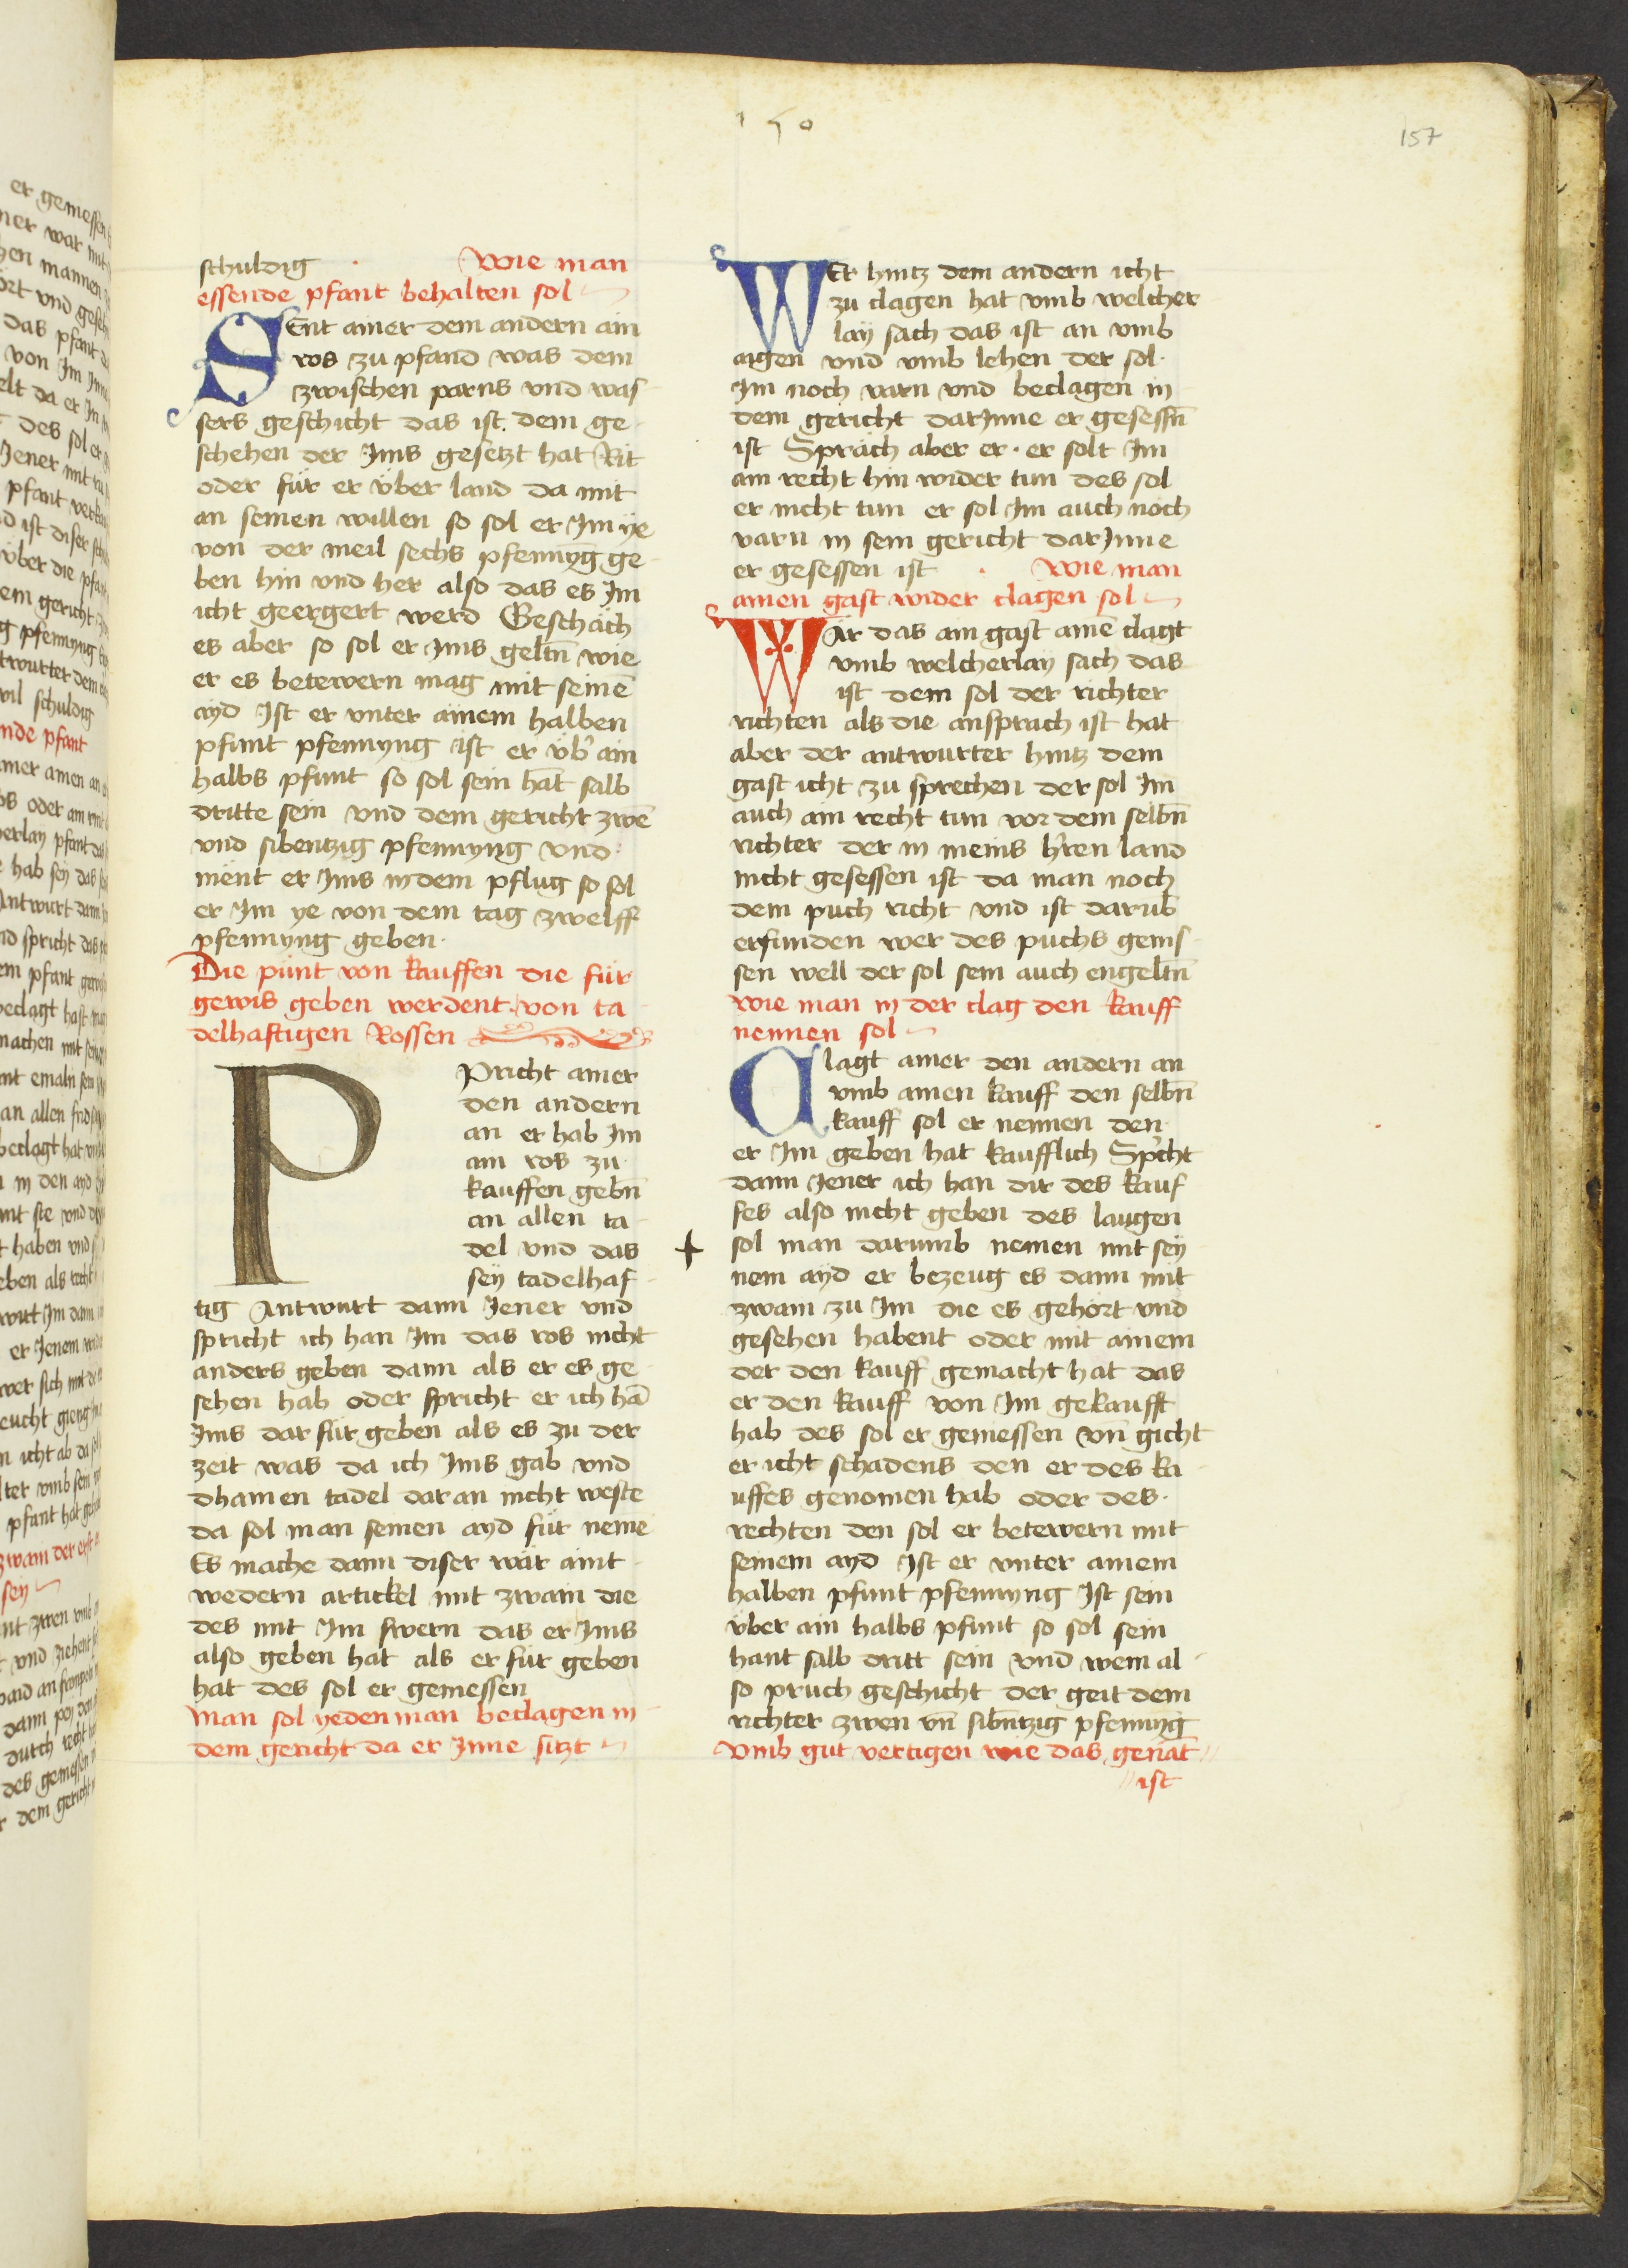 150
157
schuldig · Wie man
essende pfant behalten sol
SEnt ainer dem andern ain
ros zu pfand was dem
zwischen parns vnd was
sers geschicht das ist. dem ge
schehen der Ims gesetzt hat Rit
oder für er über land da mit
an seinen willen so sol er Im ye
von der meil sechs pfennyg ge
ben hin vnd her also das es Im
icht geergert werd Geschäch
es aber so sol er Ims geltn̄ wie
er es betewern mag mit seinē
ayd Ist er vnter ainem halben
pfunt pfennyng ist er üb' ain
halbs pfunt so sol sein hāt salb
dritte sein vnd dem gericht zwē
vnd sibentzig pfennyng vnd
ment er Ims indem pflug so sol
er Im ye von dem tag zwelff
pfennyng geben·
Die púnt von kauffen die für
gewis geben werdent von ta
delhaftigen Rossen
Pricht ainer
den andern
an er hab Im
ain ros zu
kauffen gebn̄
an allen ta
del vnd das
sey tadelhaf
tig Antwurt dann Jener vnd
spricht ich han Im das ros nicht
anders geben dann als er es ge
sehen hab oder spricht er ich hā
Ims dar für geben als es zu der
zeit was da ich Ims gab vnd
dhainen tadel daran nicht weste
da sol man seinen ayd für neme
Es mache dann diser wär aint
wedern artickel mit zwain die
des mit Im swern das er Ims
also geben hat als er für geben
hat des sol er geniessen
Man sol yeden man beclagen in
dem gericht da er Inne sitzt
WEr hintz dem andern icht
zu clagen hat vmb welcher
lay sach das ist an vmb
aigen vnd vmb lehen der sol·
Im noch varn vnd beclagen in
dem gericht darInne er gesessn̄
ist Spräch aber er· er solt Im
ain recht hin wider tun des sol
er nicht tun er sol Im auch noch
varn in sein gericht darInne
er gesessen ist · Wie man
ainen gast wider clagen sol
WÄr das ain gast ainē clagt
vmb welcherlay sach das
ist dem sol der richter
richten als die ansprach ist hat
aber der antwurter hintz dem
gast icht zu sprechen der sol Im
auch ain recht tun vor dem selbn̄
richter der in meins h'ren land
nicht gesessen ist da man noch
dem puch richt vnd ist darub̄
erfunden wer des puchs genis
sen well der sol sein auch engeltn̄
Wie man in der clag den kauff
nennen sol
Clagt ainer den andern an
vmb ainen kauff den selbn̄
kauff sol er nennen den
er Im geben hat kaufflich Sp'cht
dann Jener ich han dir des kauf
fes also nicht geben des laugen
sol man darumb nemen mit sey
nem ayd er bezeug es dann mit
zwain zu Im die es gehört vnd
gesehen habent oder mit ainem
der den kauff gemacht hat das
er den kauff von Im gekaufft
hab des sol er geniessen vn̄ gicht
er icht schadens den er des ka
uffes genomen hab oder des·
rechten den sol er betewern mit
seinem ayd Ist er vnter ainem
halben pfunt pfennyng Ist sein
über ain halbs pfunt so sol sein
hant salb dritt sein vnd wem al
so pruch geschicht der geit dem
richter zwen vn̄ sibn̄tzig pfennyg
Vmb gut vertigen wie das genāt
ist